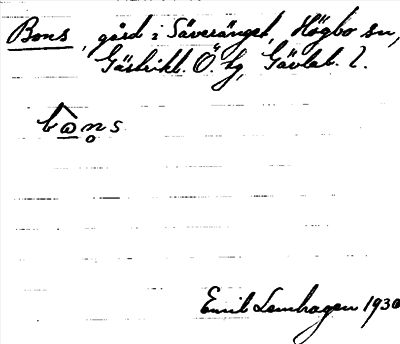 Bons, gård i Säveränget, Högbo sn,
Gästrikl. Ö. tg, Gävleb. l.
bans
Emil Lemhagen 1930